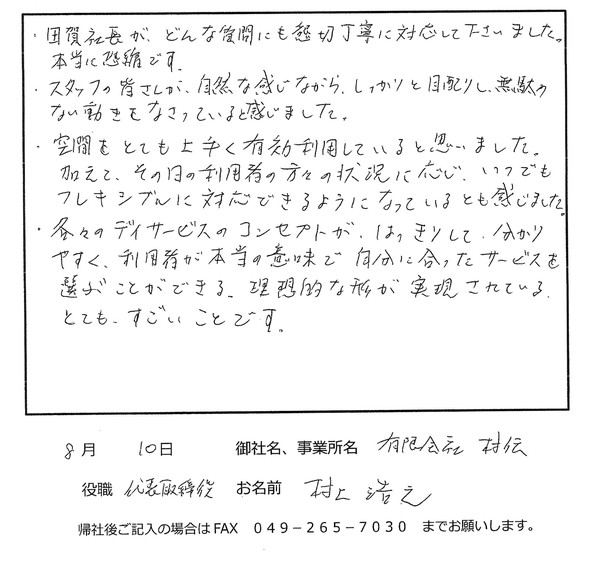 ・国賀社長が、どんな質問にも懇切丁寧に対応して下さいました。
本当に恐縮です。
・スタッフの皆さんが、自然な感じながら、しっかりと目配りし、無駄の
ない動きをなさっていると感じました。
・空間をとても上手く有効利用していると思いました。
加えて、その日の利用者の方々の状況に応じ、いつでも
フレキシブルに対応できるようになっているとも感じました。
・各々のデイサービスのコンセプトが、はっきりして、分かり
やすく、利用者が本当の意味で自分に合ったサービスを
選ぶことができる、理想的な形が実現されている、
とても、すごいことです。
8月 10日 御社名、事業所名 有限会社 村伝
役職 代表取締役 お名前 村上 浩之
帰社後ご記入の場合はFAX 049-265-7030 までお願いします。